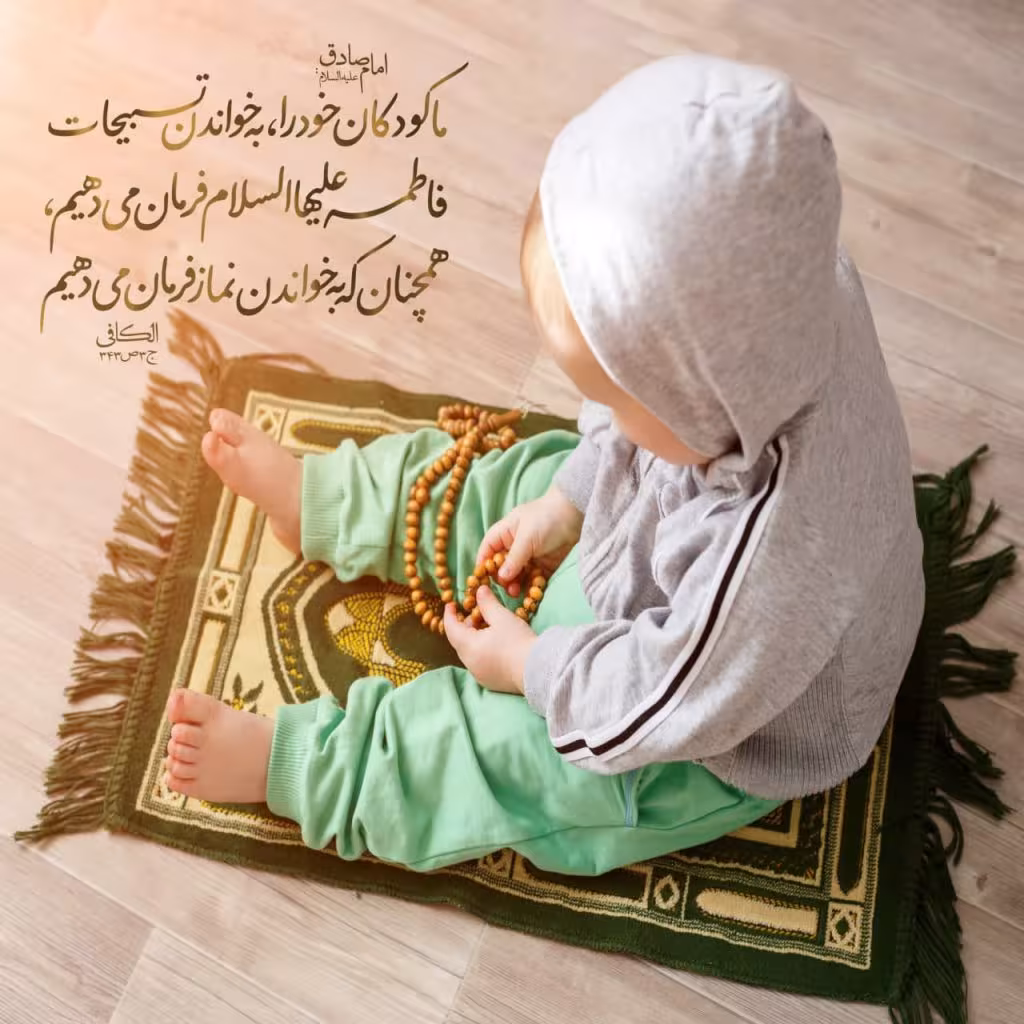 امام صادق
علیه‌السلام:
ما کودکان خود را، به خواندن تسبیحات
فاطمه علیهاالسلام فرمان می‌دهیم،
همچنان که به خواندن نماز فرمان می‌دهیم
الکافی
ج۳ص۳۴۳